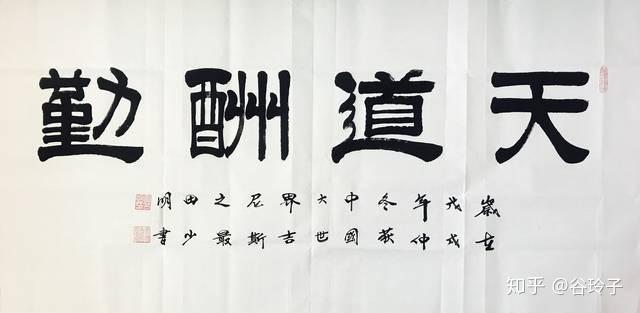 天道酬勤
歲在
戊戌
年仲
冬获
中國
大世
界吉
尼斯
之最
田少
明書
知乎 @谷玲子